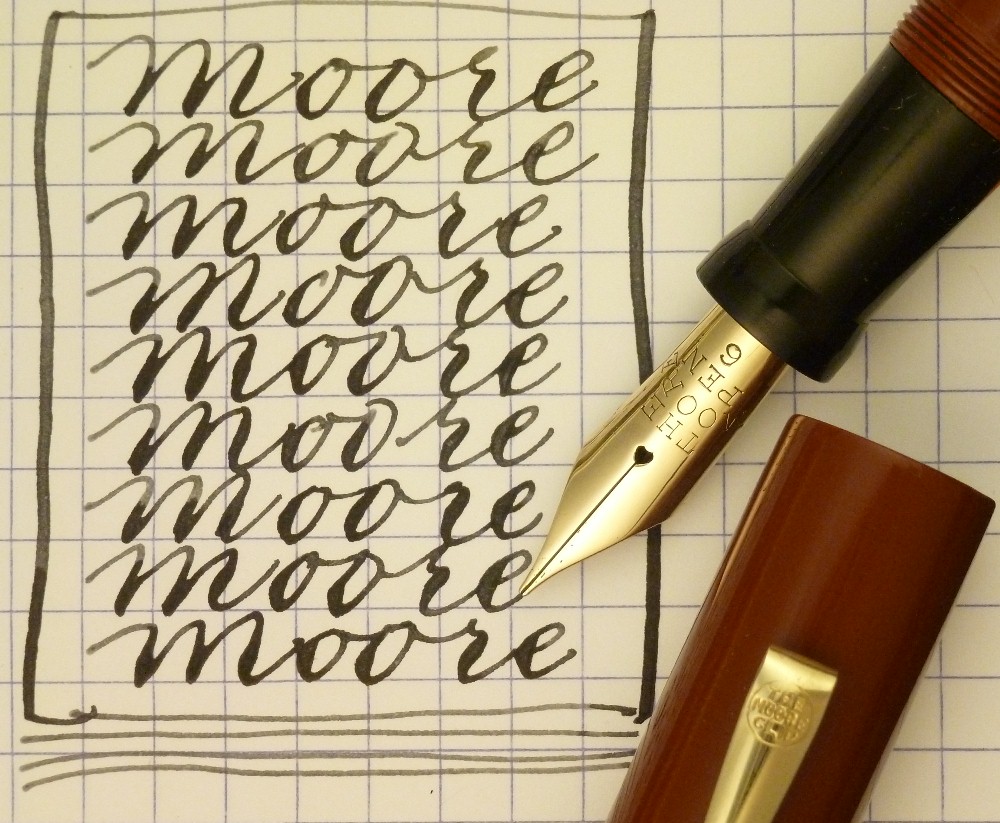 Moore
Moore
Moore
Moore
Moore
Moore
Moore
Moore
Moore
THE
MOORE
PEN
6
THE
MOORE